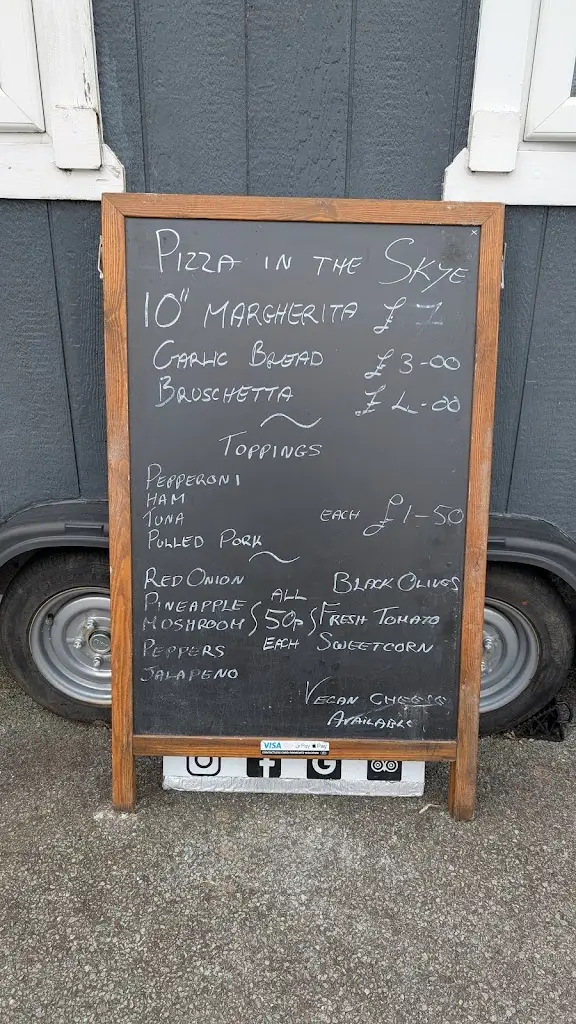 PIZZA IN THE SKYE
10" MARGHERITA £7
GARLIC BREAD £3-00
BRUSCHETTA £4-00
TOPPINGS
PEPPERONI
HAM
TUNA EACH £1-50
PULLED PORK
RED ONION BLACK OLIVES
PINEAPPLE ALL
MUSHROOM 50p FRESH TOMATO
PEPPERS EACH SWEETCORN
JALAPENO
VEGAN CHEESE
AVAILABLE
VISA Pay Pay